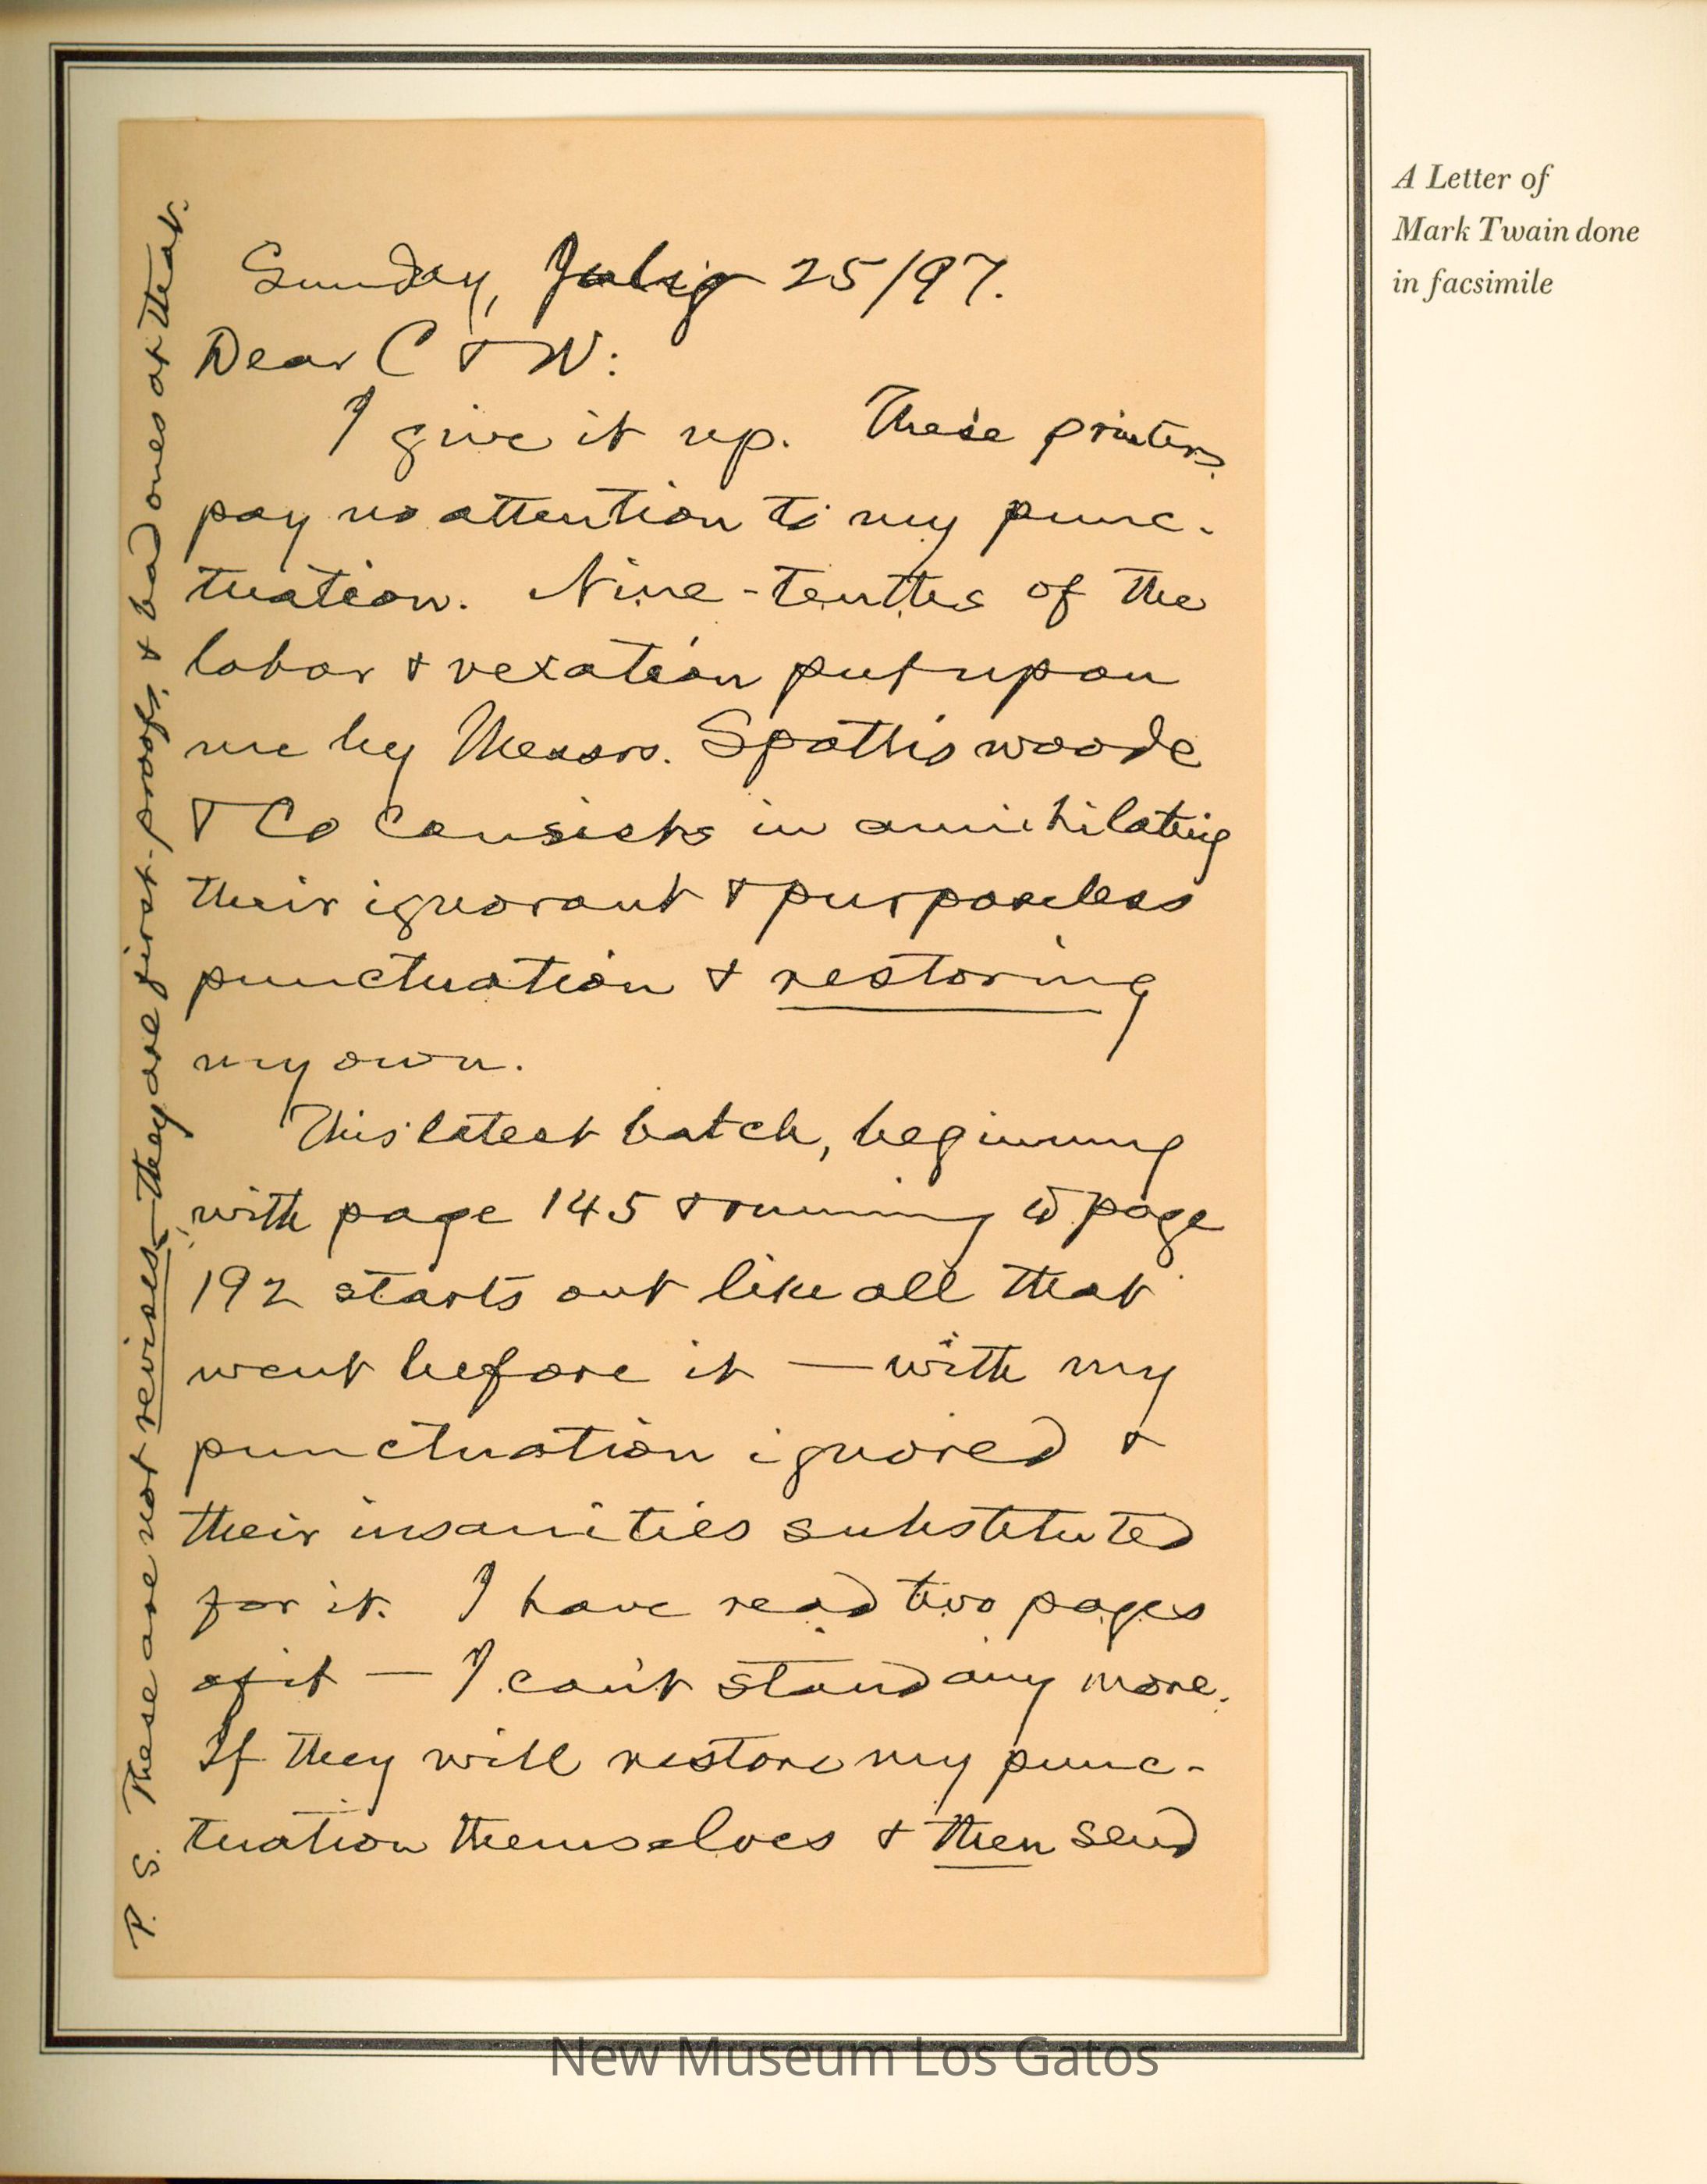 Sunday, July 25/97.
Dear C & W:
I give it up. These printers
pay no attention to my punc-
tuation. Nine-tenths of the
labor & vexation put upon
me by Messrs. Spottiswoode
& Co consists in annihilating
their ignorant & purposeless
punctuation & restoring
my own.
This latest batch, beginning
with page 145 & running to page
192 starts out like all that
went before it — with my
punctuation ignored &
their insanities substituted
for it. I have read two pages
of it — I can't stand any more.
If they will restore my punc-
tuation themselves & then send
P. S. These are not revises—they are first-proofs, & bad ones at that.
A Letter of
Mark Twain done
in facsimile
New Museum Los Gatos